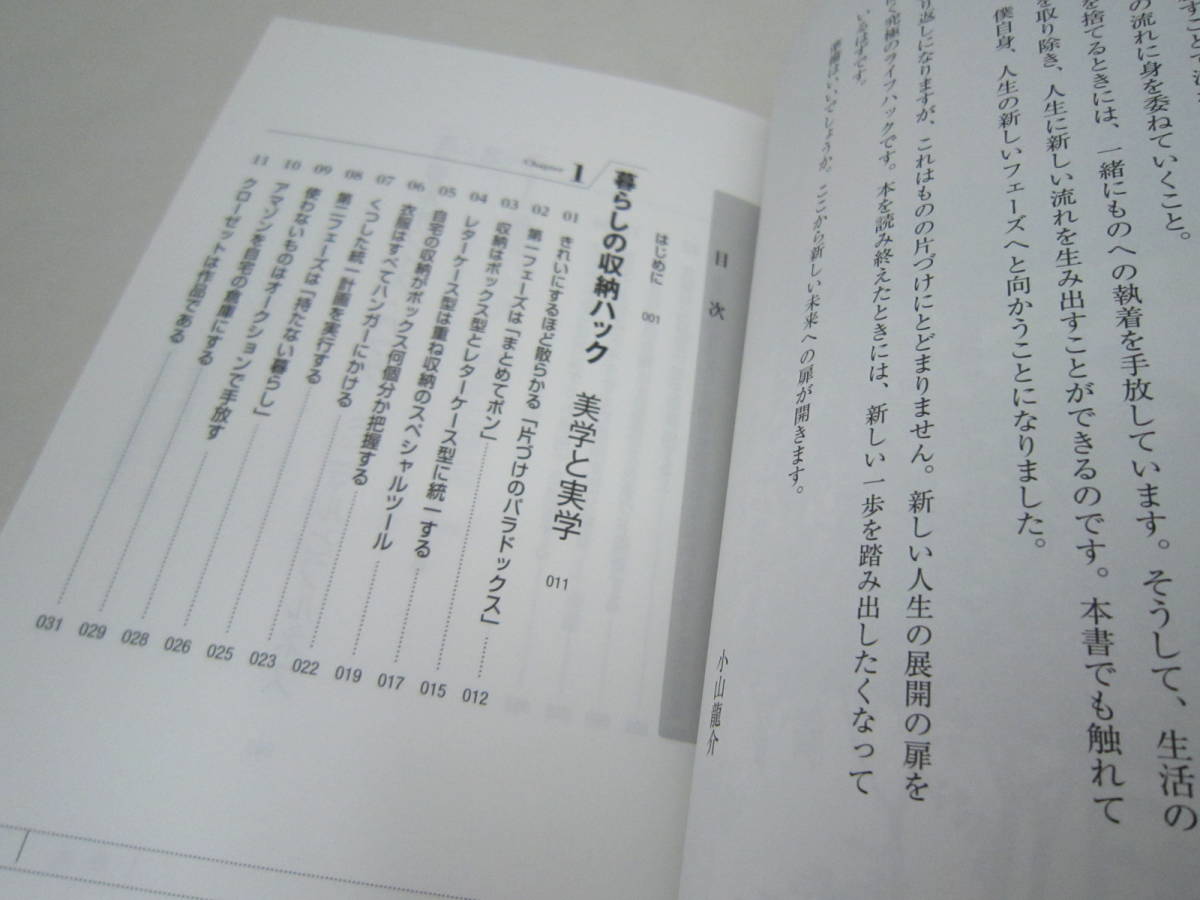 すことで
の流れに身を委ねていくこと。
を捨てるときには、一緒にものへの執着を手放しています。そうして、生活の
を取り除き、人生に新しい流れを生み出すことができるのです。本書でも触れて
僕自身、人生の新しいフェーズへと向かうことになりました。
り返しになりますが、これはもの片づけにとどまりません。新しい人生の展開の扉を
く究極のライフハックです。本を読み終えたときには、新しい一歩を踏み出したくなって
いるはずです。
準備はいいでしょうか。ここから新しい未来への扉が開きます。
小山龍介
目次
はじめに 001
Chapter 1 暮らしの収納ハック 美学と実学 011
01 きれいにするほど散らかる「片づけのパラドックス」 012
02 第一フェーズは「まとめてポン」 015
03 収納はボックス型とレターケース型に統一する 017
04 レターケース型は重ね収納のスペシャルツール 019
05 自宅の収納がボックス何個分か把握する 022
06 衣服はすべてハンガーにかける 023
07 くつした統一計画を実行する 025
08 第二フェーズは「持たない暮らし」 026
09 使わないものはオークションで手放す 028
10 アマゾンを自宅の倉庫にする 029
11 クローゼットは作品である 031